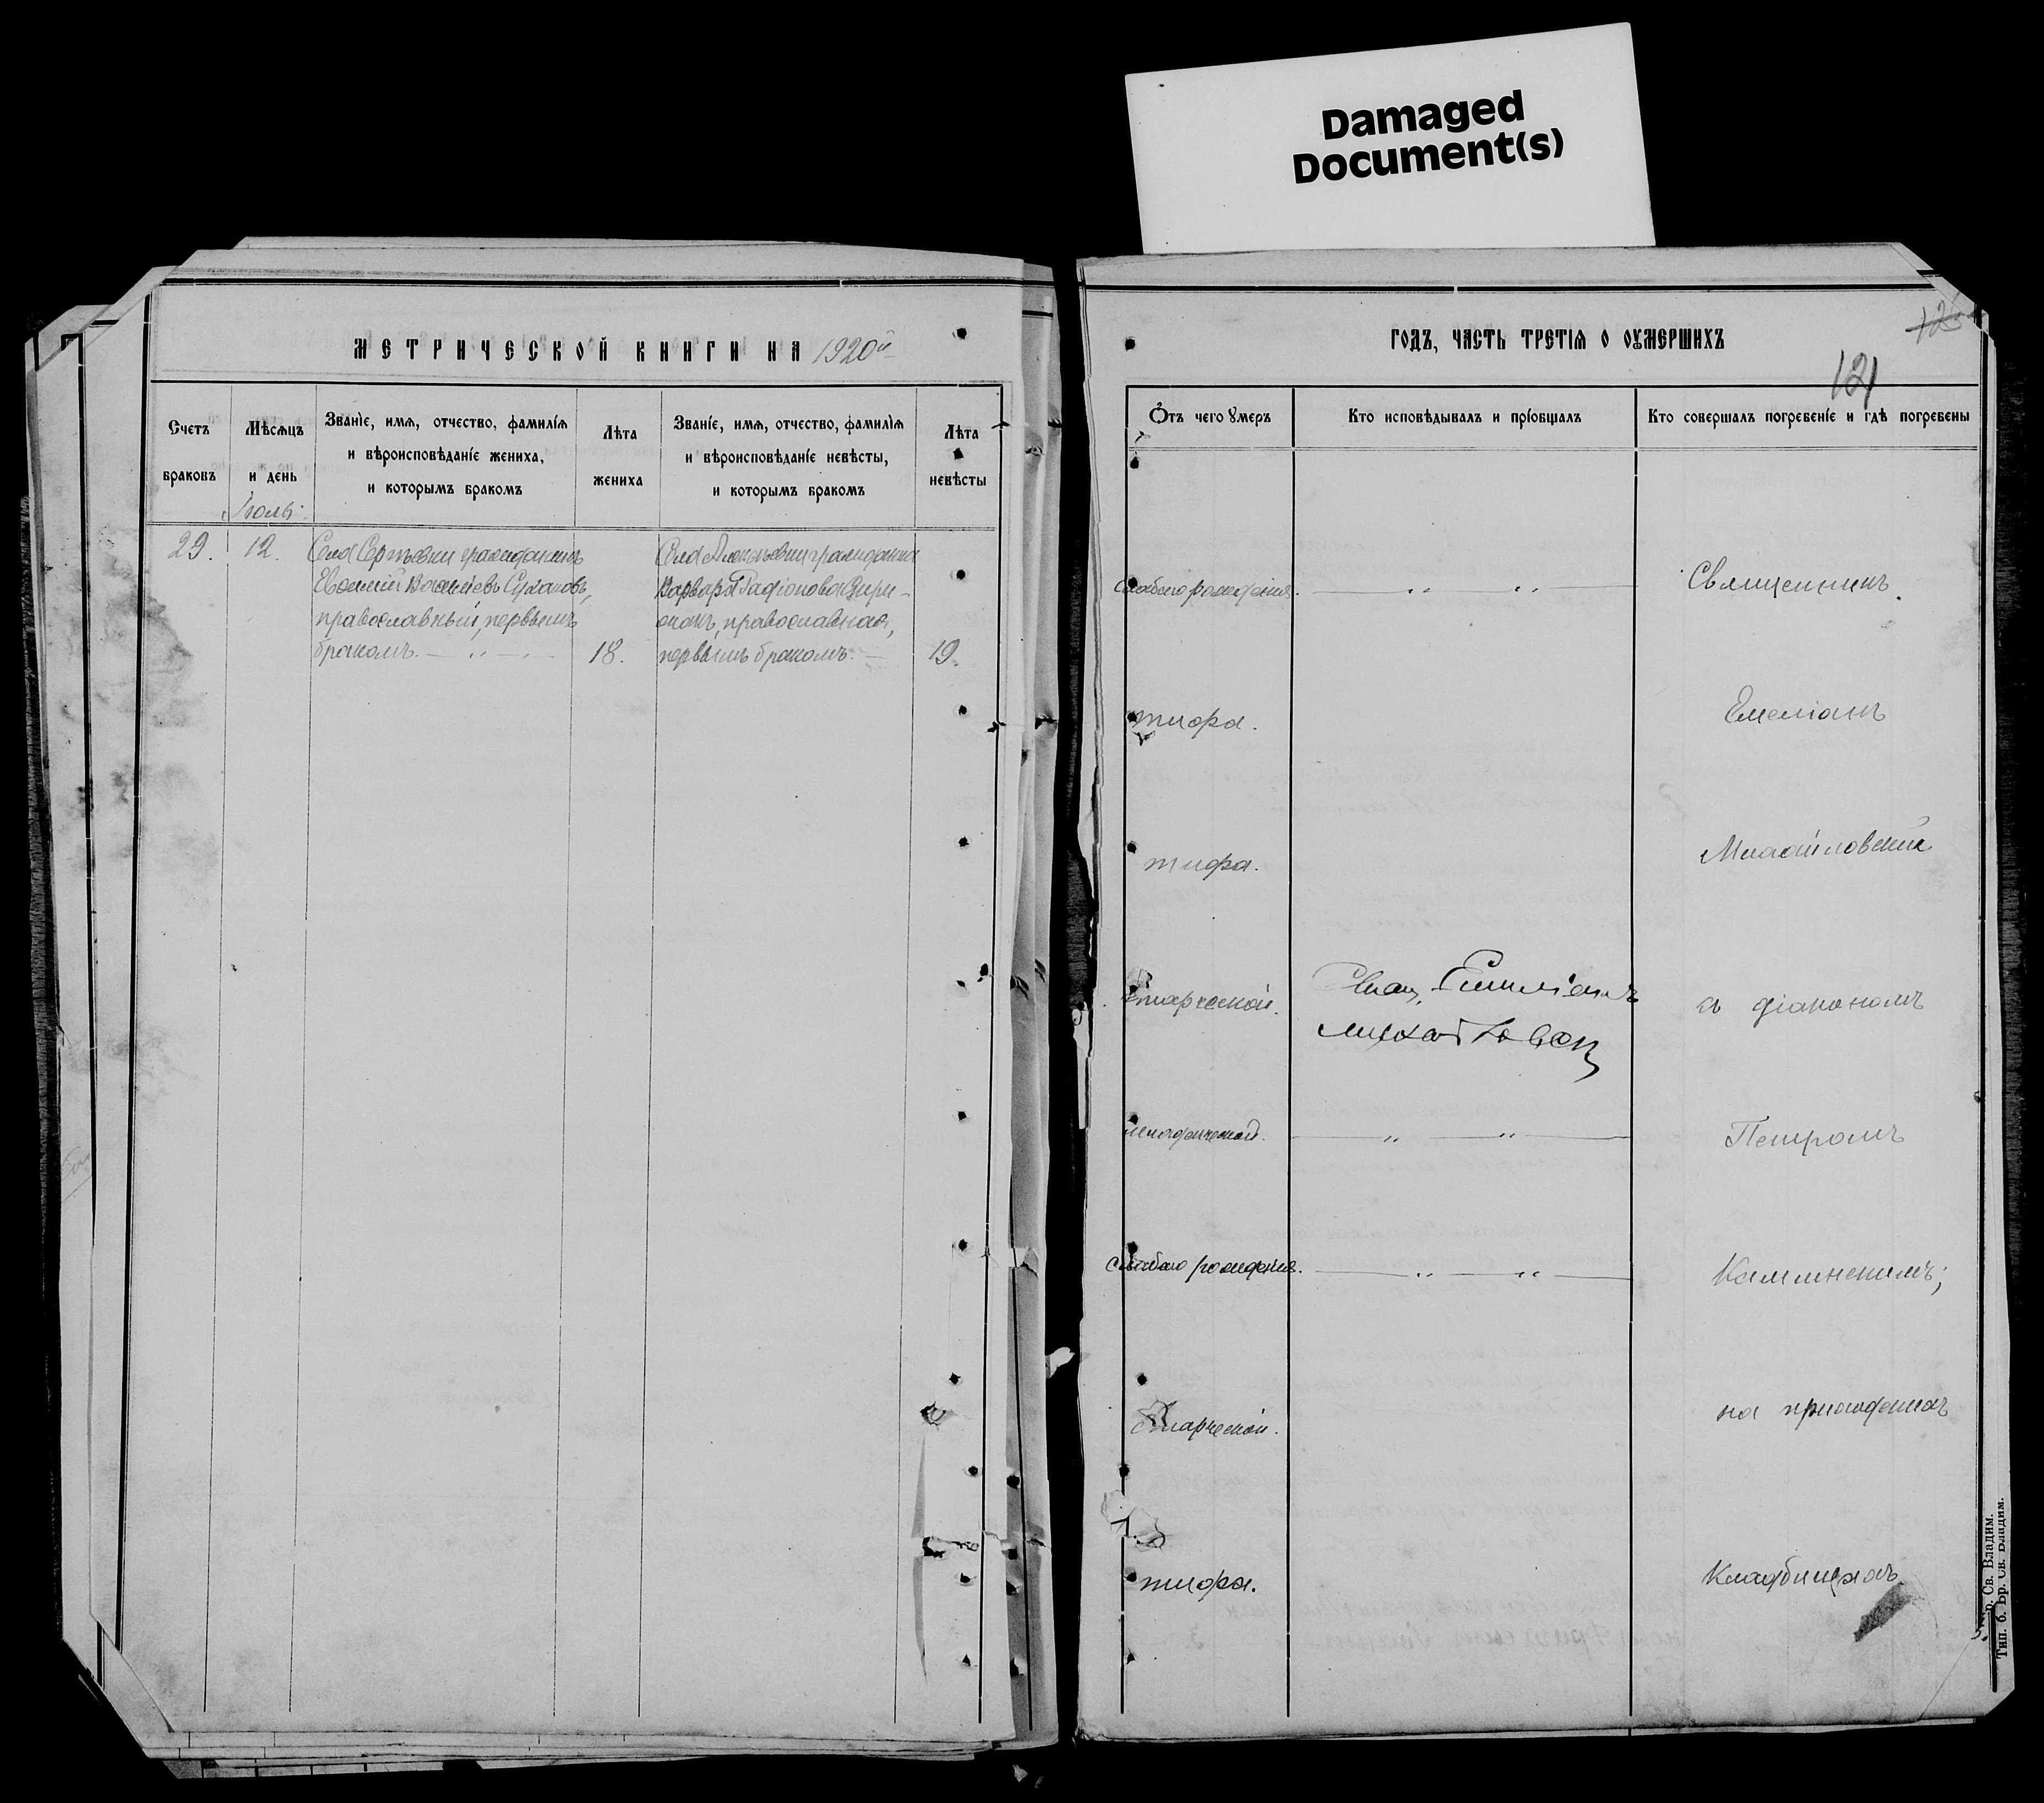 Damaged
Document(s)
МЕТРИЧЕСКОЙ КНИГИ НА 1920й
Счетъ
браковъ
Мѣсяцъ
и день
Званіе, имя, отчество, фамилія
и вѣроисповѣданіе жениха,
и которымъ бракомъ
Лѣта
жениха
Званіе, имя, отчество, фамилія
и вѣроисповѣданіе невѣсты,
и которымъ бракомъ
Лѣта
невѣсты
Іюль.
29. 12.
Села Сергѣевки гражданинъ
Василіевъ Сухановъ,
православный, первымъ
бракомъ. 18.
Села гражданка
Варвара Радіонова
православная,
первымъ бракомъ. 19.
ГОДЪ, ЧАСТЬ ТРЕТІЯ О ОУМЕРШИХЪ
125
121
Отъ чего умеръ
Кто исповѣдывалъ и пріобщалъ
Кто совершалъ погребеніе и гдѣ погребены
слабаго рожденія. Священникъ
тифа. Емеліанъ
тифа. Михайловскій
старческой. Свящ. Емиліанъ
Михайловск
съ діакономъ
младенческой. Петромъ
слабаго рожденія. Калинскимъ;
Старческой. на приходскихъ
тифа. кладбищахъ
р. Св. Владим.
Тип. б. Бр. Св. Владим.